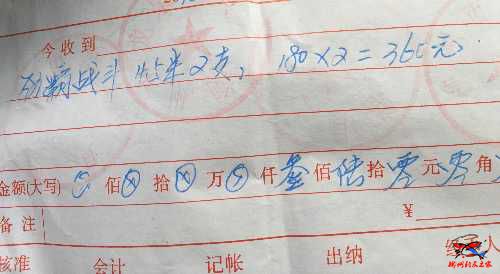 今收到
战斗 2支, 180×2=360元
金额(大写) ⊗ 佰 ⊗ 拾 ⊗ 万 ⊗ 仟 叁 佰 陆 拾 零 元 零 角
备注 ¥
核准 会计 记帐 出纳 人